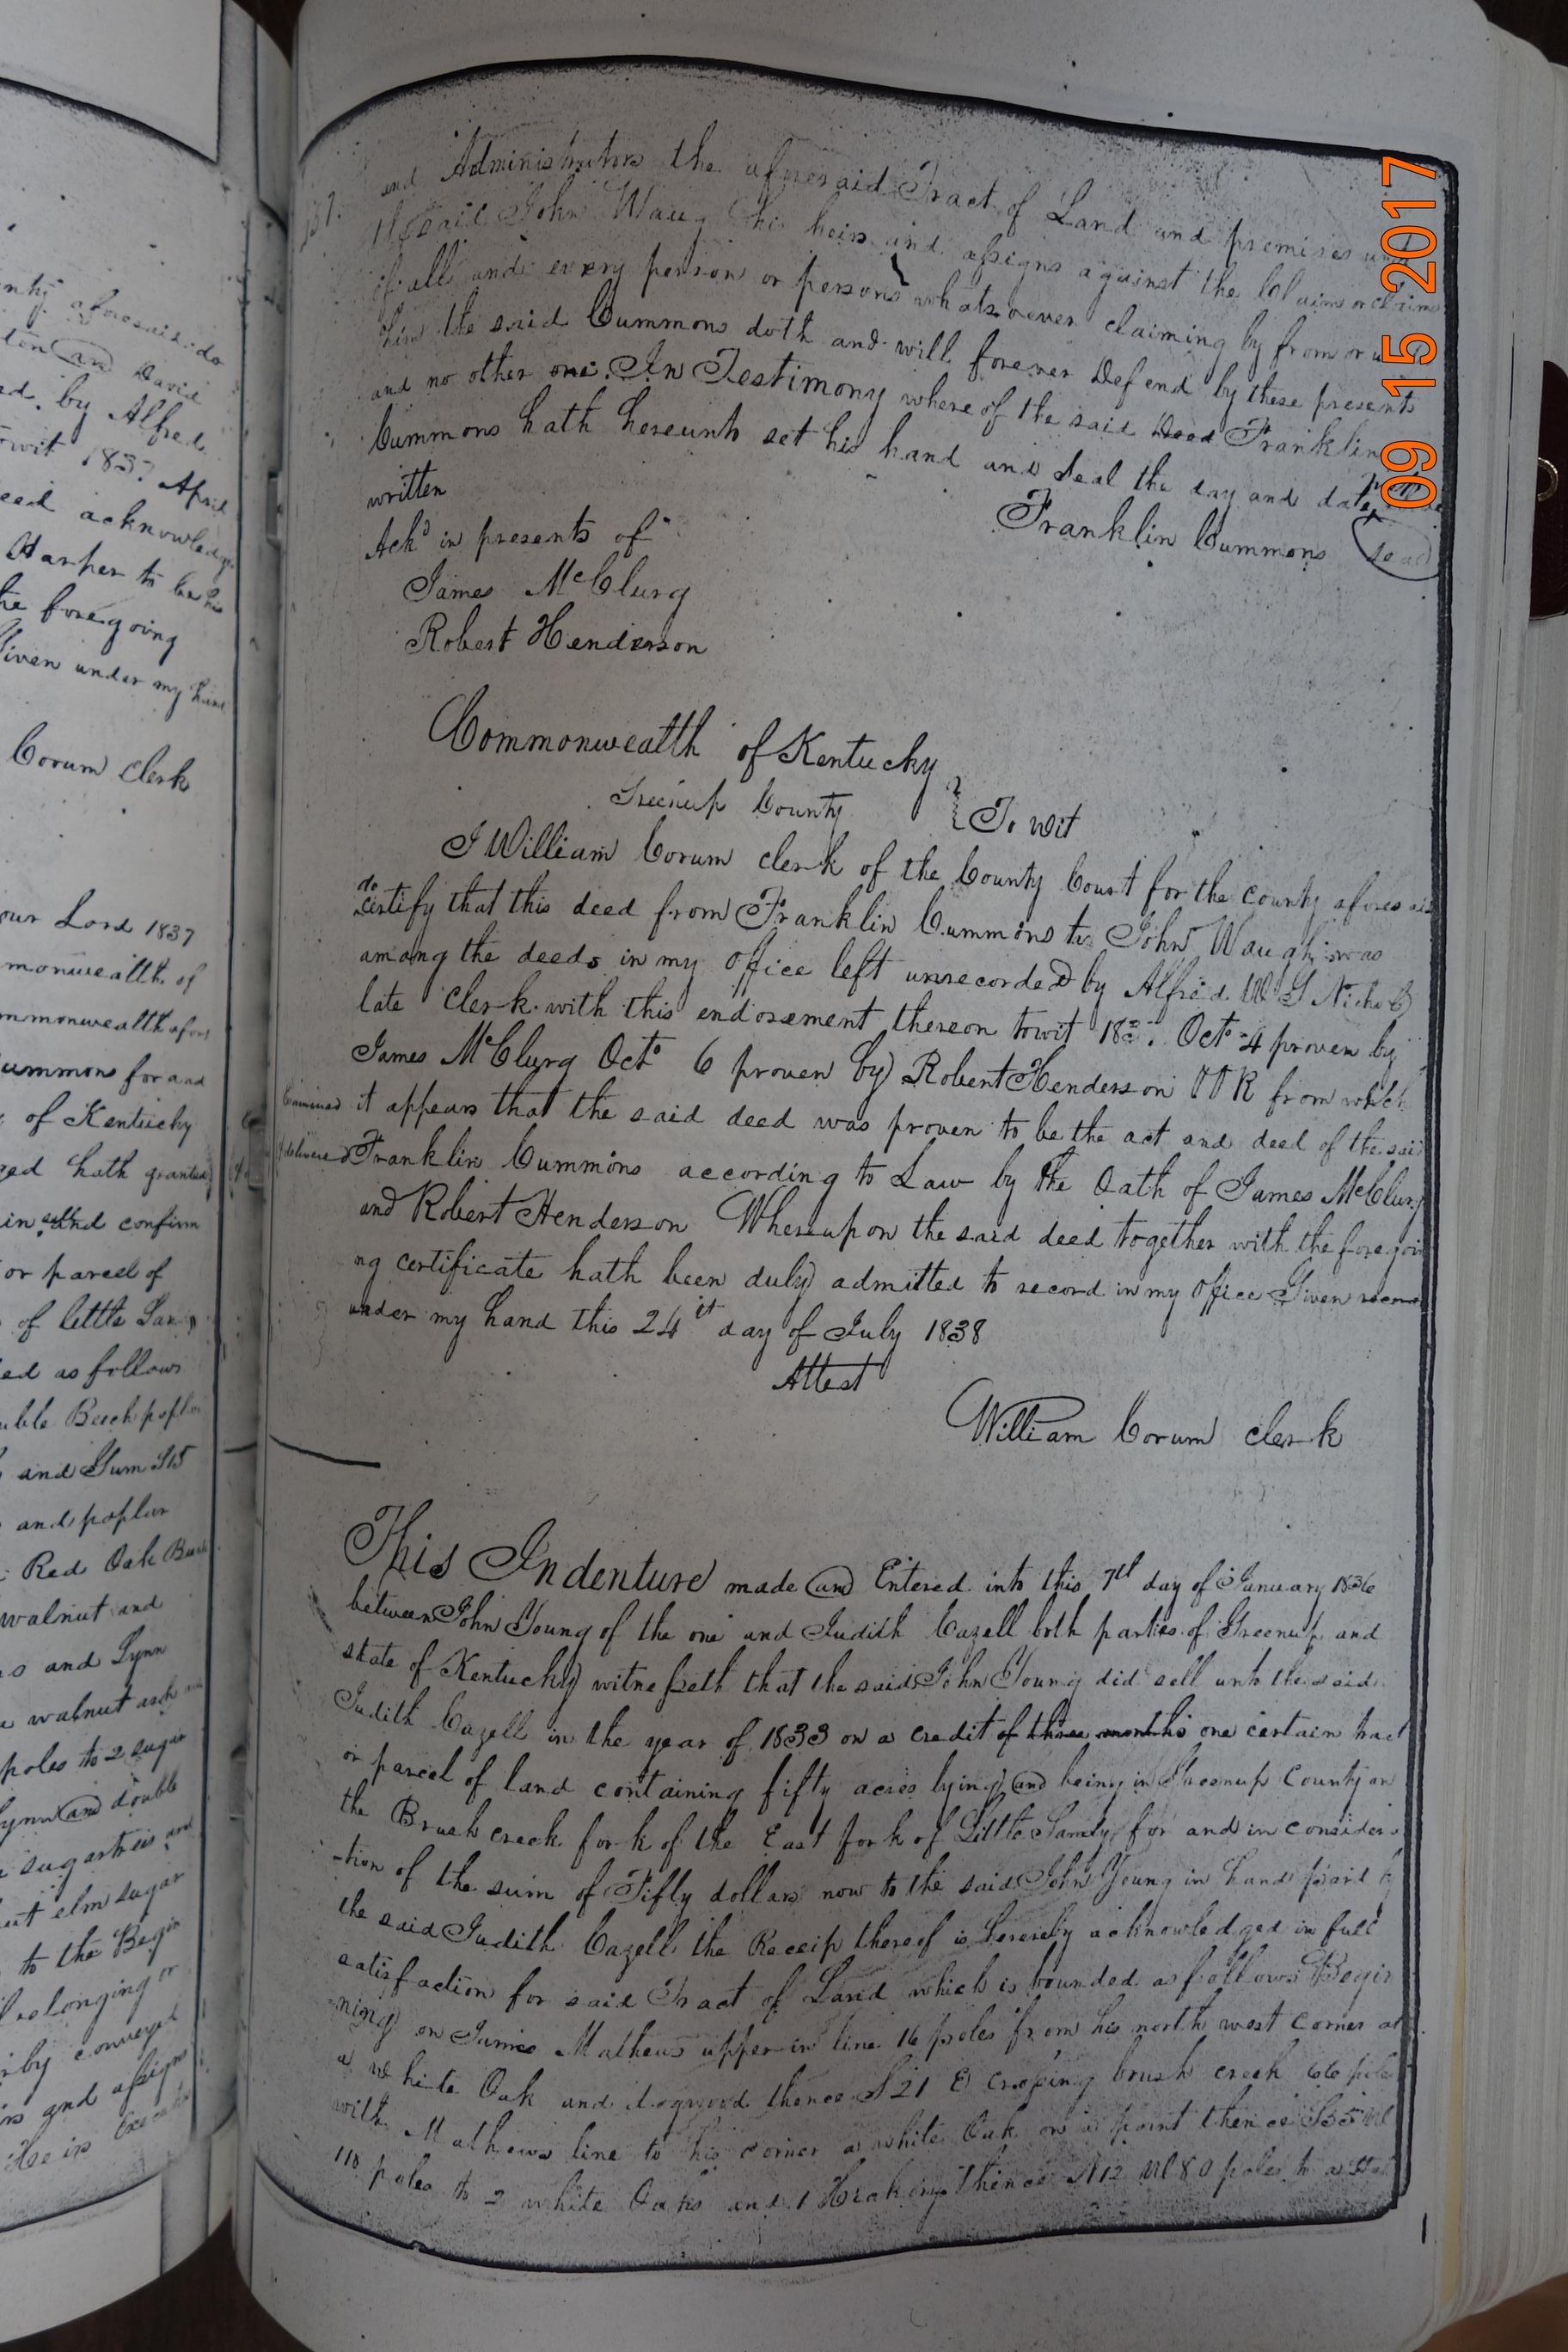 nty aforesaid do
ton and David
ed. by Alfred
towit 1837 April
eed acknowledge
Harper to be his
he foregoing
Given under my hand
Corum Clerk
our Lord 1837
monwealth of
mmonwealth afors
ummons for and
of Kentucky
ged hath granted
in and confirm
or parcel of
of little San
ed as follows
uble Beech popla
and Gum S15
and poplar
Red Oak Bee
walnut and
s and Lynn
walnut ash
poles to 2 sugar
Lynn and double
sugartrees and
ut elm sugar
to the Begin
belonging or
rby conveyed
rs and assigns
Heirs Executo
137.
and Administrators the aforesaid Tract of Land and premises unto
the said John Waug his heirs and assigns against the Claim or claims
of all and every person or persons whatsoever claiming by from or u
him the said Cummons doth and will forever Defend by these presents
and no other one. In Testimony where of the said Deed Franklin
Cummons hath hereunto set his hand and Seal the day and date
written
Franklin Cummons Seal
Ackd in presents of
James McClurg
Robert Henderson
Commonwealth of Kentucky
Greenup County } To wit
I William Corum clerk of the County Court for the county aforesaid
do certify that this deed from Franklin Cummons to John Waugh was
among the deeds in my office left unrecorded by Alfred W G Nichols
late Clerk with this endorsement thereon towit 183 Octo 4 proven by
James McClurg Octo 6 proven by Robert Henderson OOR from which
Examined it appears that the said deed was proven to be the act and deed of the said
& delivered Franklin Cummons according to Law by the Oath of James McClurg
and Robert Henderson Whereupon the said deed together with the foregoi
ng certificate hath been duly admitted to record in my office Given
under my hand this 24st day of July 1838
Attest
William Corum clerk
This Indenture made and Entered into this 7th day of January 1836
between John Young of the one and Judith Cazell both parties of Greenup and
state of Kentucky witnesseth that the said John Young did sell unto the said
Judith Cazell in the year of 1833 on a credit of three months one certain tract
or parcel of land containing fifty acres lying and being in Greenup County on
the Brush creek fork of the East fork of Little Sandy for and in considera
-tion of the sum of Fifty dollars now to the said John Young in hand paid by
the said Judith Cazell the Receip thereof is hereby acknowledged in full
satisfaction for said Tract of Land which is bounded as follows Begin
-ning on James Mathews upper in line 16 poles from his north west corner at
a white Oak and dogwood thence S 21 E croping brush creek 66 poles
with Mathews line to his corner a white Oak on a point thence S 35 W
110 poles to 2 white Oaks and 1 Hickory Thence N 12 W 80 poles to a
09 15 2017